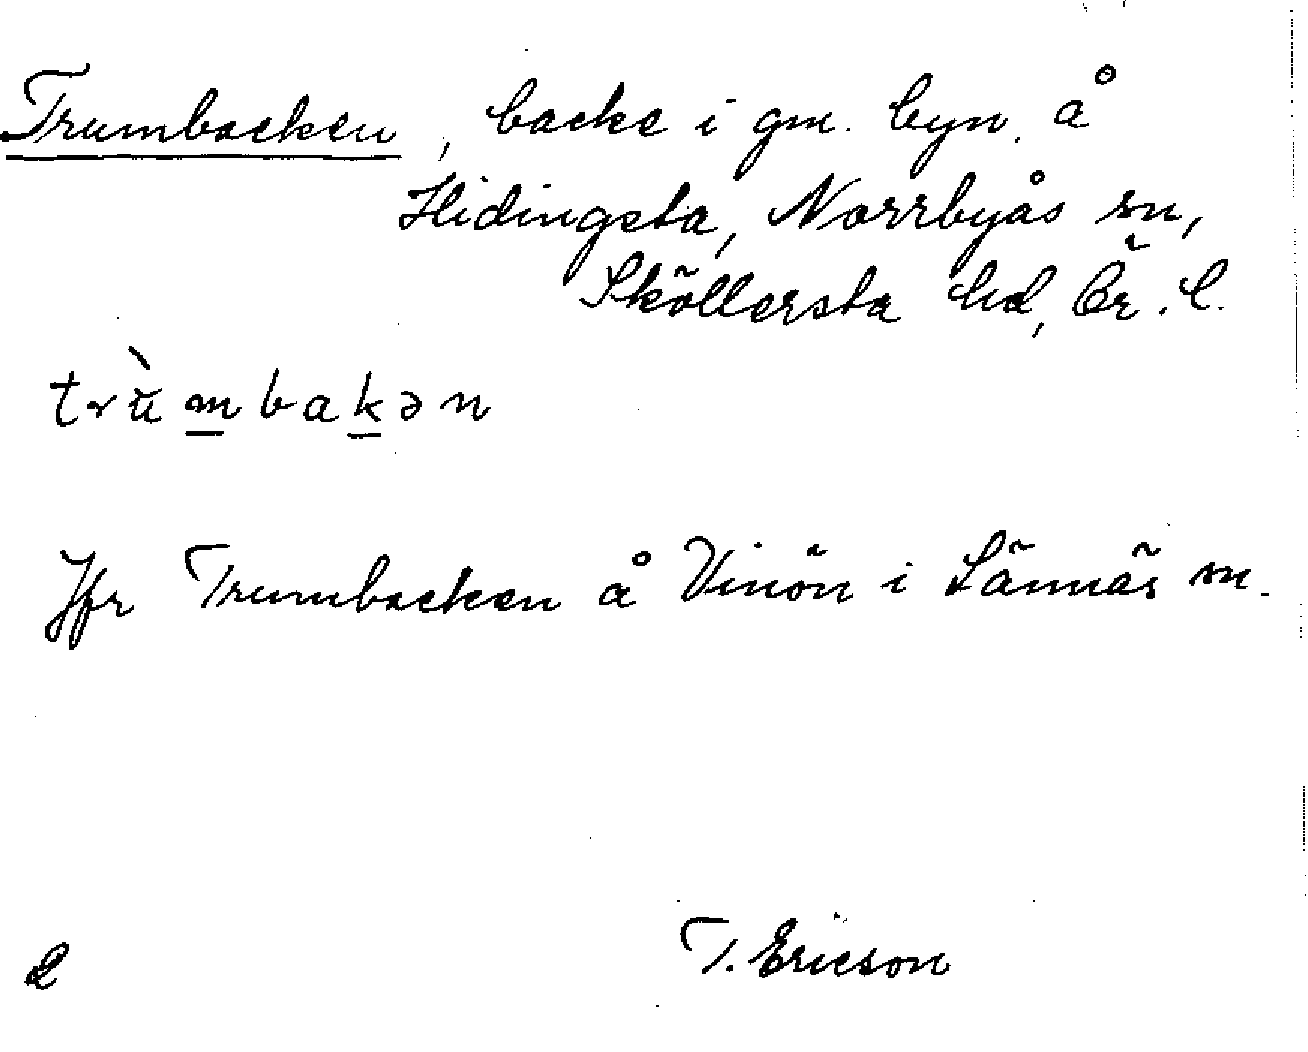 Trumbacken, backe i gm. byn å
Hidingsta, Norrbyås sn,
Sköllersta hd, Ör. l.
trùmbakən
Jfr Trumbacken å Vinön i Lännäs sn.
T. Ericson